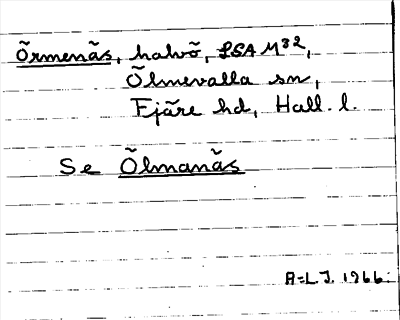 Örmenäs, halvö, LSA M32,
Ölmevalla sn,
Fjäre hd, Hall. l.
Se Ölmanäs
A-L.J. 1966.